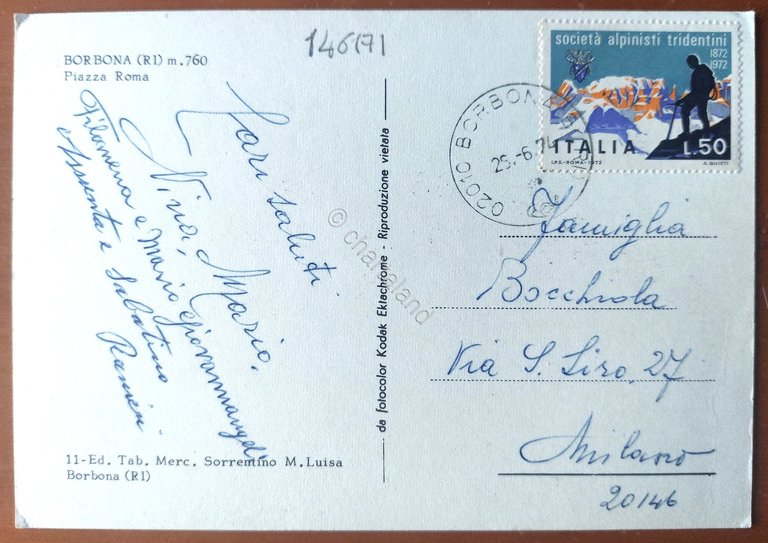 146171
BORBONA (RI) m. 760
Piazza Roma
Cari saluti
Nina, Mario,
Filomena e Mario Giovannangeli
Assunta e Sabatino
Ranieri
11-Ed. Tab. Merc. Sorrentino M. Luisa
Borbona (RI)
da fotocolor Kodak Ektachrome - Riproduzione vietata
© chartaland
società alpinisti tridentini
1872
1972
ITALIA L.50
I.P.S.-ROMA-1972
02010 BORBONA
29.-6.74
Famiglia
Bocchiola
Via S. Siro, 27
Milano
20146